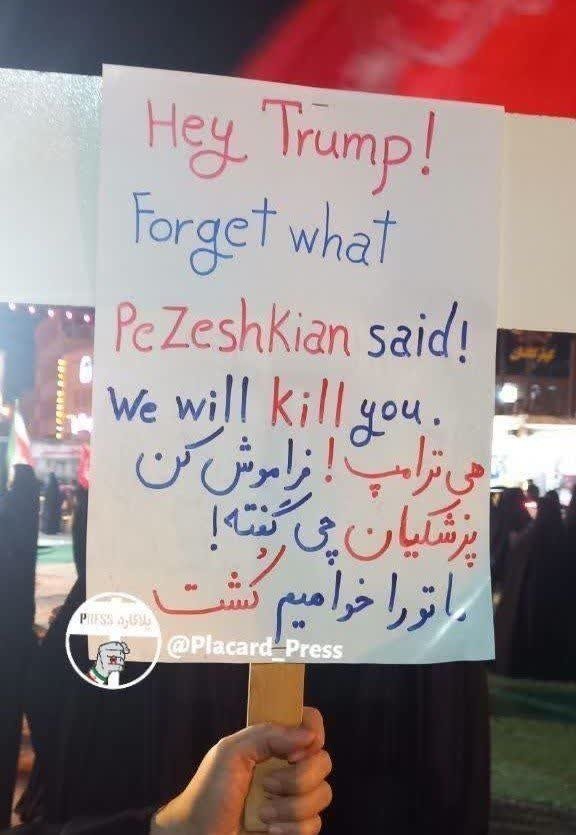 Hey Trump!
Forget what
Pezeshkian said!
We will kill you.
هی ترامپ! فراموش کن
پزشکیان چی گفته!
ما تو را خواهیم کُشت
PRESS پلاکارد
@Placard_Press